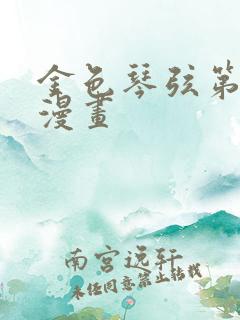 金色琴弦第
漫畫
南宮逸轩
未经同意禁止转载